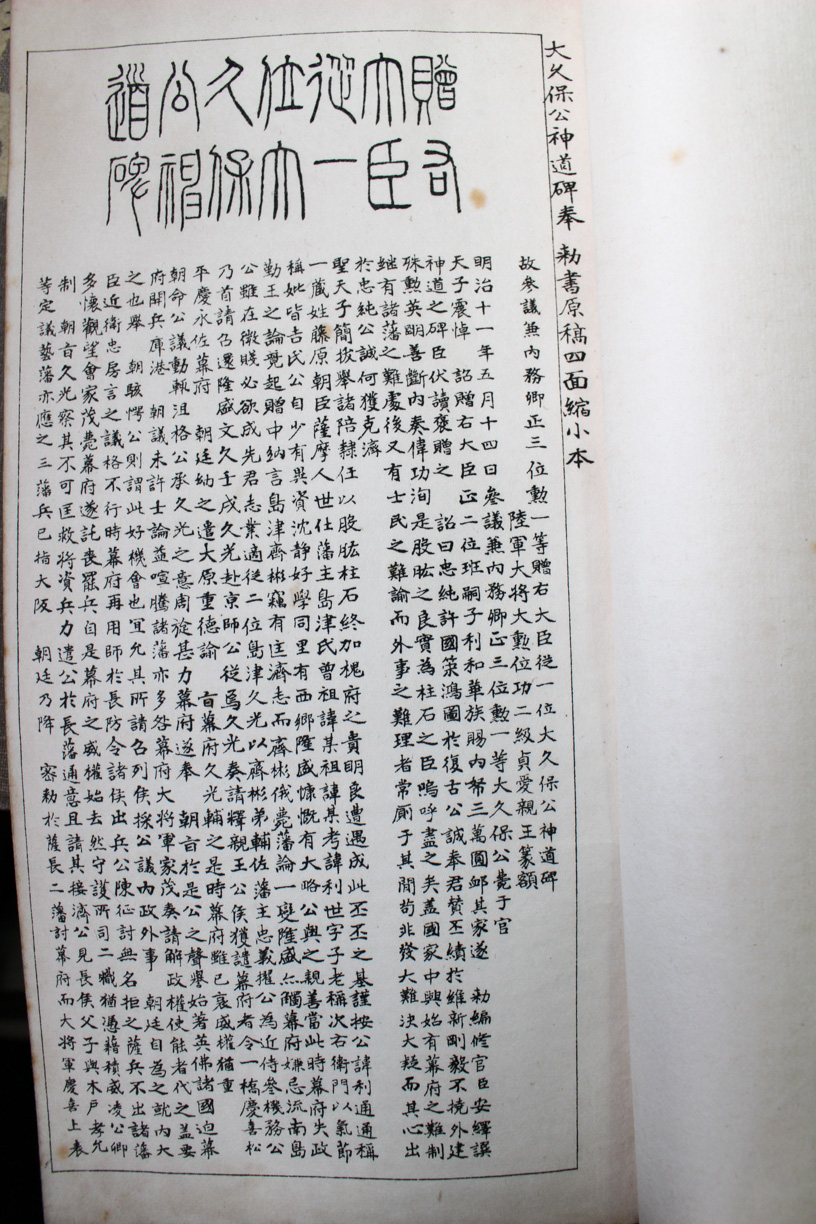 大久保公神道碑奉 勅書原稿四面縮小本
贈右
大臣
從一
位大
久保
公神
道碑
故參議兼內務卿正三位勳一等贈右大臣從一位大久保公神道碑
陸軍大將大勳位功二級貞愛親王篆額
明治十一年五月十四日參議兼內務卿正三位勳一等大久保公薨于官
天子震悼 詔贈右大臣正二位班嗣子利和華族賜內帑三萬圓卹其家遂 勅編修官臣安繹譔
神道之碑臣伏讀褒贈之 詔曰忠純許國策鴻圖於復古公誠奉君贊丕績於維新剛毅不撓外建
殊勳英明善斷內奏偉功洵是股肱之良實為柱石之臣嗚呼盡之矣蓋國家中興始有幕府之難制
繼有諸藩之難處後又有士民之難諭而外事之難理者常厠于其間苟非發大難決大疑而其心出
於忠純公誠何獲克濟
聖天子簡拔舉諸陪隸任以股肱柱石終加槐府之貴明良遭遇成此丕丕之基謹按公諱利通通稱
一藏姓藤原朝臣薩摩人世仕藩主島津氏曾祖諱某祖諱某考諱利世字子老稱次右衛門以氣節
稱妣皆吉氏公自少有異資沈靜好學同里有西鄉隆盛慷慨有大略公與之親善當此時幕府失政
勤王之論競起贈中納言島津齊彬竊有匡濟志而齊彬俄薨藩論一變隆盛亦觸幕府嫌忌流南島
公雖在微賤必欲成先君志業適從二位島津久光以齊彬弟輔佐藩主忠義擢公為近侍參機務公
乃首請召還隆盛文久壬戌久光赴京師公從焉久光奏請釋親王公侯獲譴幕府者令一橋慶喜松
平慶永佐幕府 朝廷納之遣大原重德諭 旨幕府久光輔之是時幕府雖已衰威權猶重
朝命公議動輒沮格公承久光之意周旋甚力幕府遂奉 朝旨於是公之聲譽始著英佛諸國迫幕
府開兵庫港 朝議未許士論益喧騰諸藩亦多咎幕府大將軍家茂奏請解政權使能者代之蓋要
之也舉 朝駭愕公則謂此好機會也宜允其所請召列侯採公議內政外事 朝廷自為之就內大
臣近衛忠房言之議格不行時幕府再用師於長防令諸侯出兵公陳征討無名拒之薩兵不出諸藩
多懷觀望會家茂薨幕府遂託喪罷兵自是幕府之威權始去然守護所司二職猶憑藉積威凌公卿
制 朝旨久光察其不可匡救將資兵力遣公於長藩通意且請其接濟公見長侯父子與木戶孝允
等定議藝藩亦應之三藩兵已指大阪 朝廷乃降 密勅於薩長二藩討幕府而大將軍慶喜上表